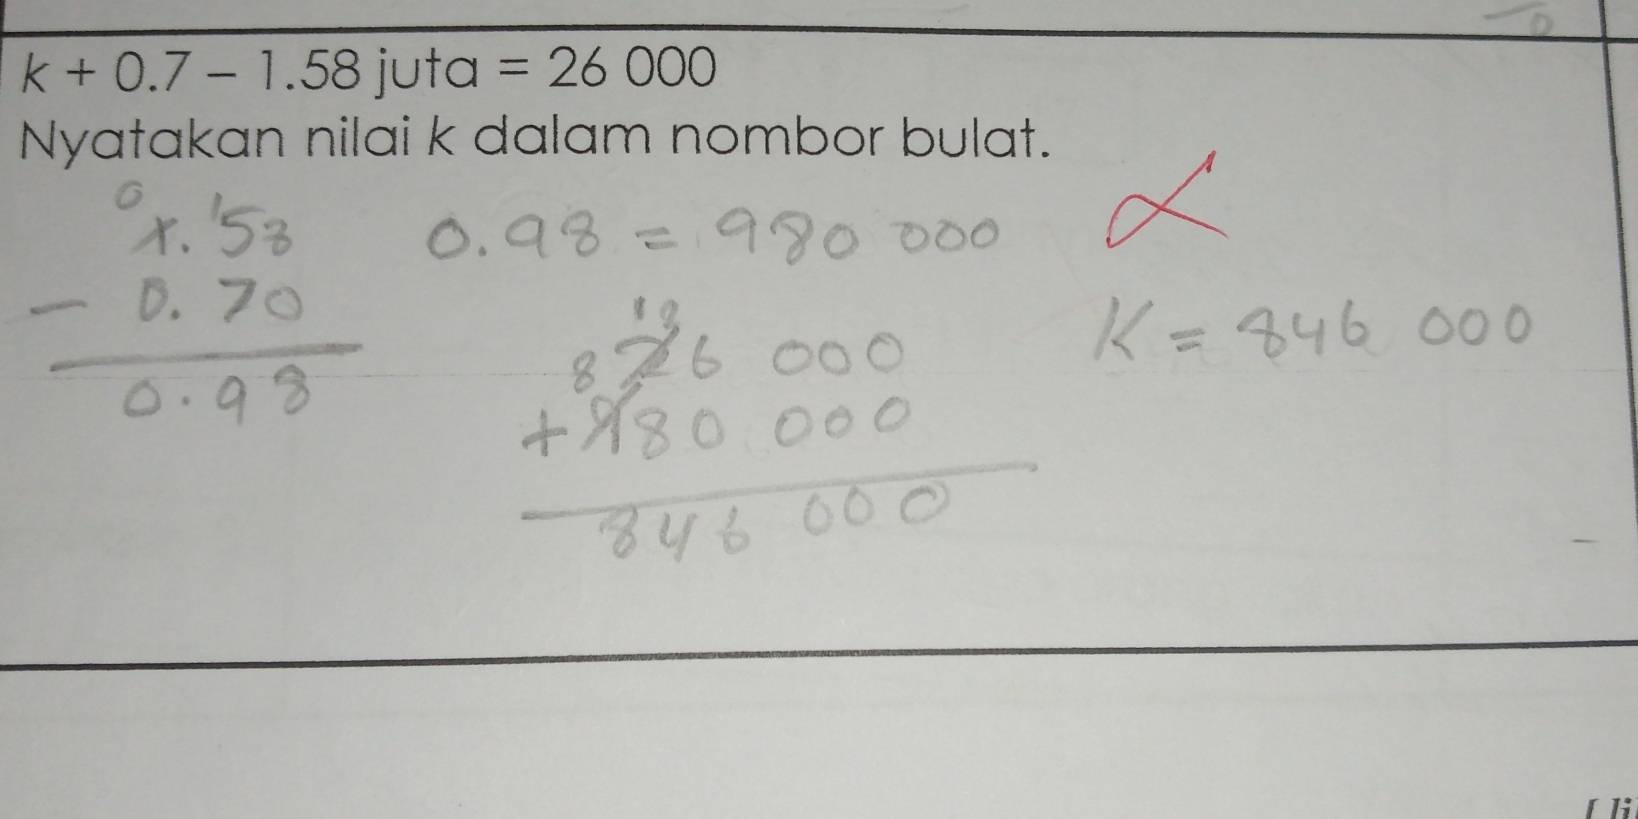 k + 0.7 – 1.58 juta = 26 000
Nyatakan nilai k dalam nombor bulat.
1.58
– 0.70
0.98
0.98 = 980 000
26 000
+ 980 000
846 000
K = 846 000